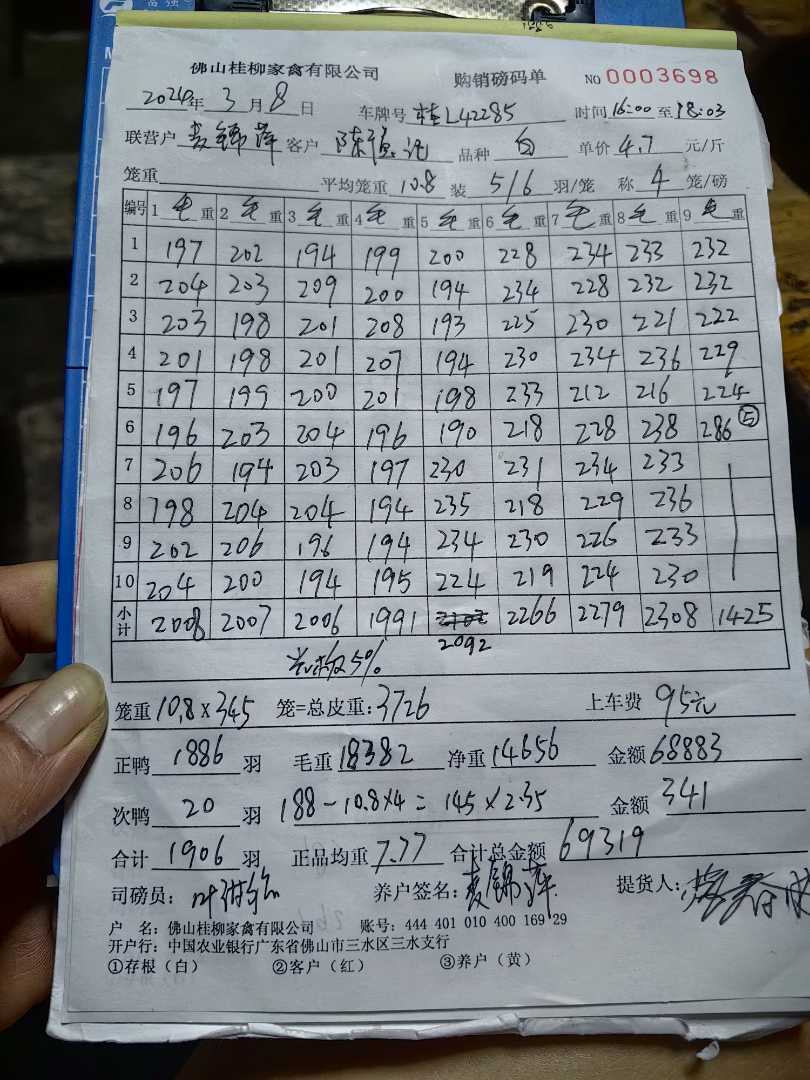 佛山桂柳家禽有限公司 购销磅码单 NO 0003698
2024年 3月 8日 车牌号 桂L42285 时间 16:00 至 18:03
联营户 麦锦萍 客户 品种 白 单价 4.7 元/斤
笼重 平均笼重 10.8 装 5/6 羽/笼 称 4 笼/磅
编号 1 毛 重 2 毛 重 3 毛 重 4 毛 重 5 毛 重 6 毛 重 7 毛 重 8 毛 重 9 毛 重
1 197 202 194 199 200 228 234 233 232
2 204 203 209 200 194 234 228 232 232
3 203 198 201 208 193 225 230 221 222
4 201 198 201 207 194 230 234 236 229
5 197 199 200 201 198 233 212 216 224
6 196 203 204 196 190 218 228 238 286 ⑤
7 206 194 203 197 230 231 234 233
8 198 204 204 194 235 218 229 236
9 202 206 196 194 234 230 226 233
10 204 200 194 195 224 219 224 230
小计 2008 2007 2006 1991 2092 2266 2279 2308 1425
5%
笼重 10.8 x 345 笼=总皮重: 3726 上车费 95元
正鸭 1886 羽 毛重 18382 净重 14656 金额 68883
次鸭 20 羽 188 - 10.8x4 = 145 x 2.35 金额 341
合计 1906 羽 正品均重 7.77 合计总金额 69319
司磅员: 养户签名: 麦锦萍 提货人:
户 名: 佛山桂柳家禽有限公司 账号: 444 401 010 400 169 29
开户行: 中国农业银行广东省佛山市三水区三水支行
①存根（白） ②客户（红） ③养户（黄）